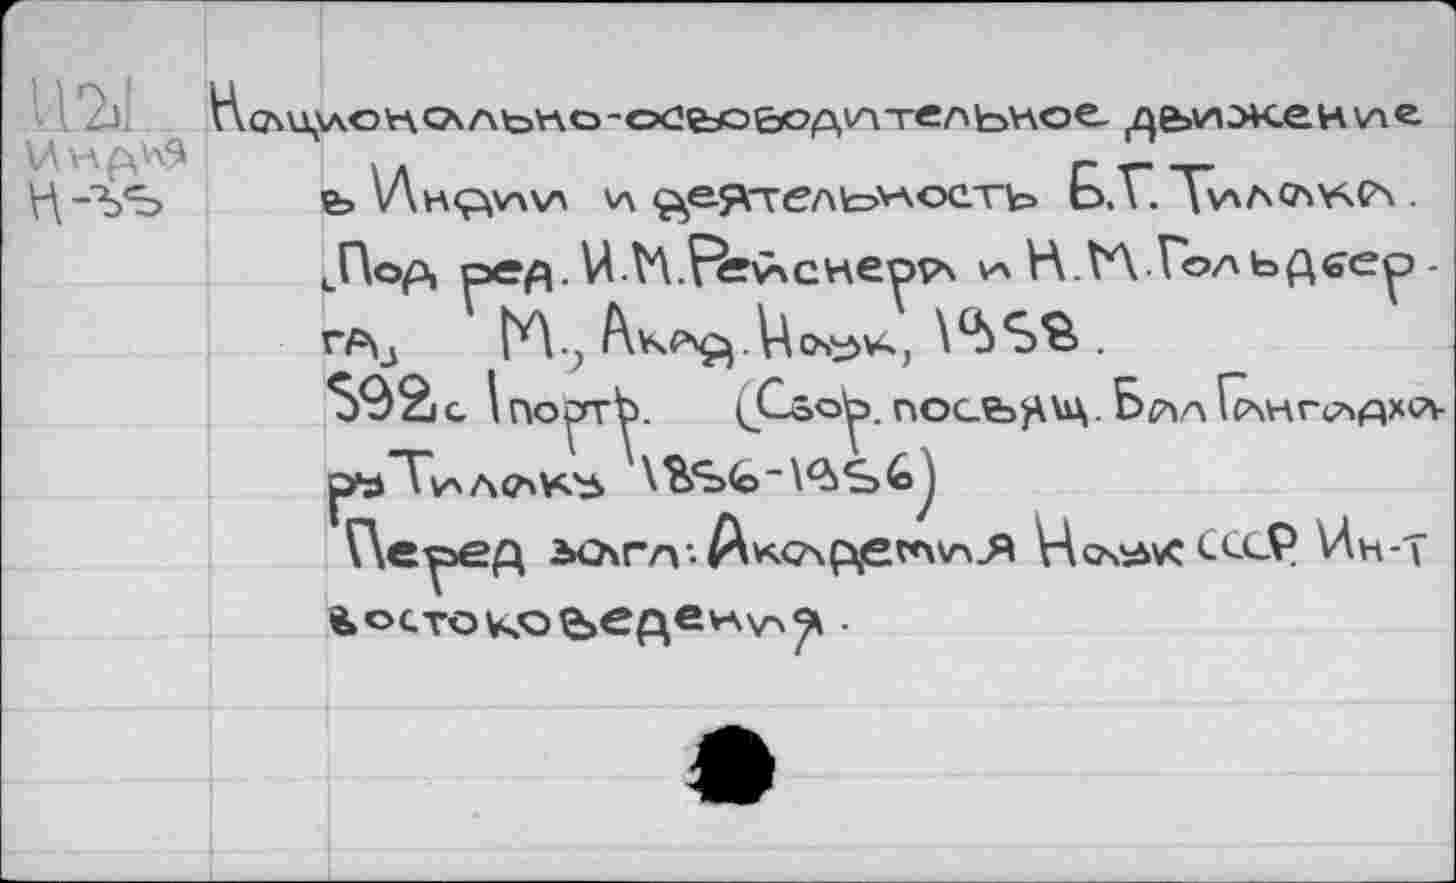 И2
Национально-освободительное движение
Индия
Н-35
в Индии и деятельность Б.Г. Тилака.
[Под ред. И.М.Рейснера и Н.М.Гольдбер-
га] М., Акад. Наук, 1958.
592с 1портр. (Сборн. посвящ. Бал Гангадха-
ру Тилаку 1856-1956)
Перед загл: Академия Наук СССР. Ин-т
востоковедения.